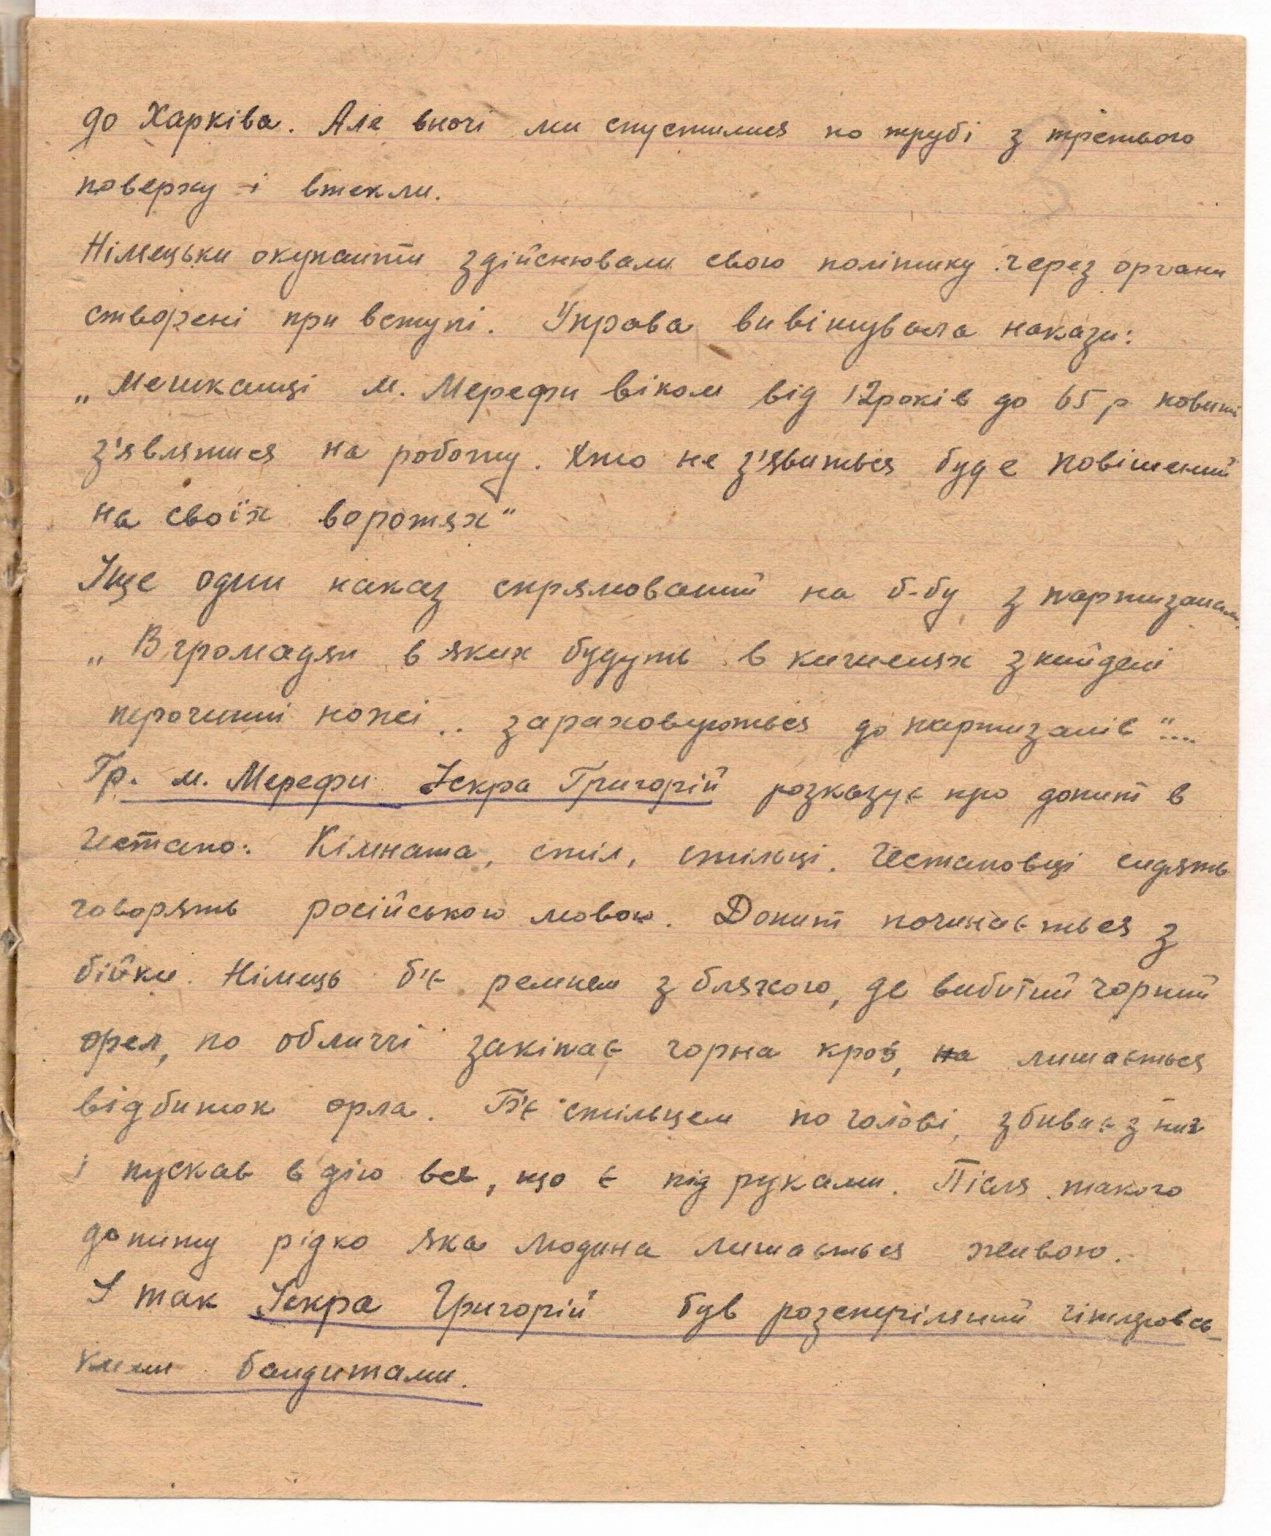 до Харківа. Але вночі ми спустилися по трубі з третього
поверху і втекли.
Німецьки окупанти здійснювали свою політику через органи
створені при вступі. Управа вивішувала накази:
„Мешканці м. Мерефи віком від 12років до 65 р повинні
з'являтися на роботу. Хто не з'явиться буде повішений
на своїх воротях“
Іще один наказ спрямований на б-бу з партизанами.
„В громадян в яких будуть в кишенях знайдені
перочинні ножі .. зараховуються до партизанів“....
Гр. м. Мерефи Іскра Григорій розказує про допит в
гестапо: Кімната, стіл, стільці. Гестаповці сидять
говорять російською мовою. Допит починається з
бійки. Німець б'є ременем з бляхою, де вибитий чорний
орел, по обличчі закіпає чорна кров, на лишається
відбиток орла. Б'є стільцем по голові, збиває з ніг
і пускає в дію все, що є під руками. Після такого
допиту рідко яка людина лишається живою.
І так Іскра Григорій був розстріляний гітлеровсь-
кими бандитами.